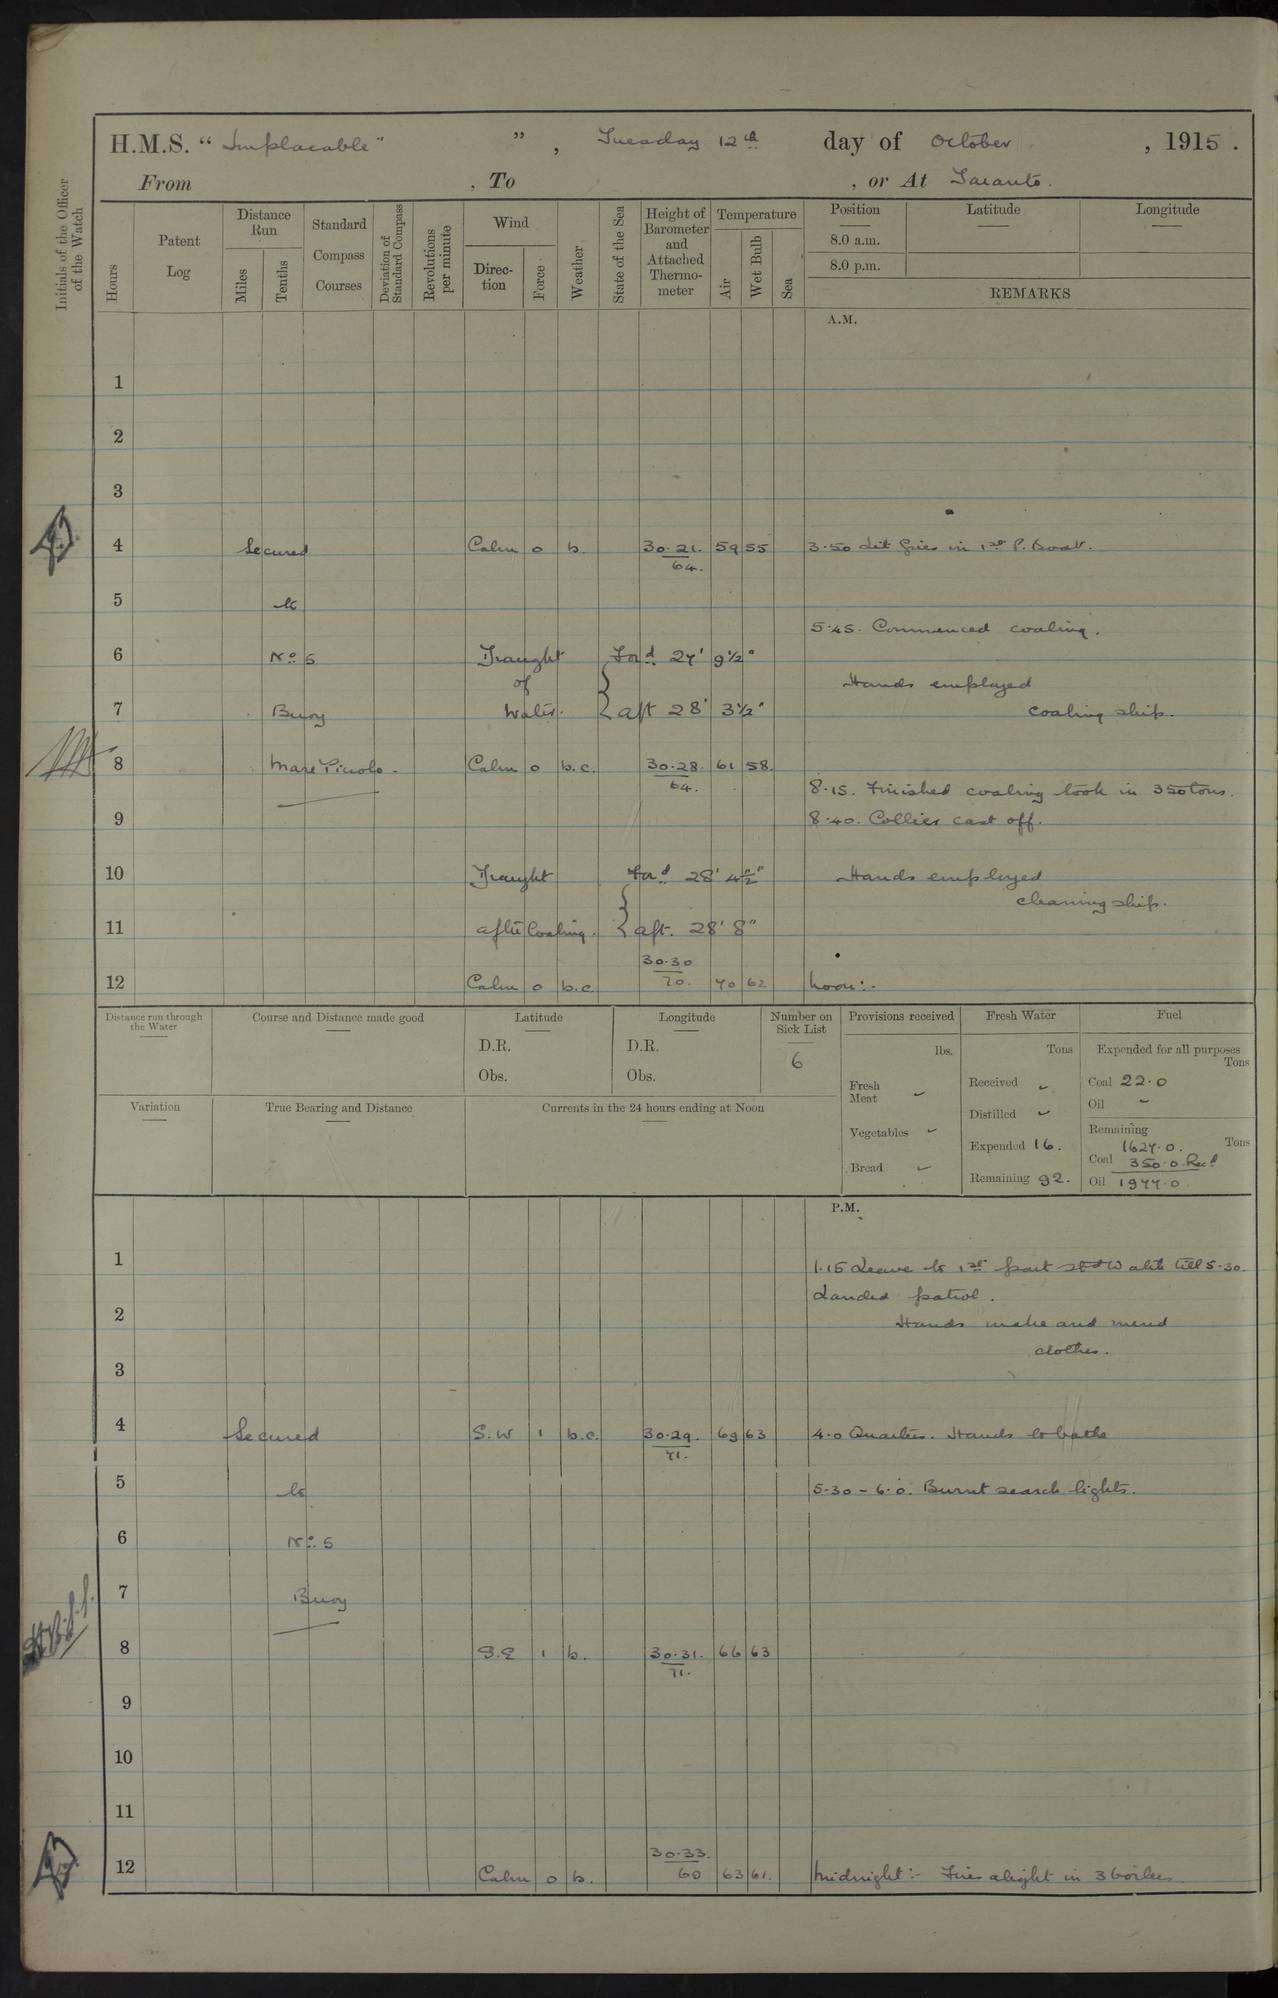 H.M.S. "Implacable" ", Tuesday 12th day of October, 1915.
From , To , or At Taranto.
Initials of the Officer of the Watch
Hours
Patent Log
Distance Run
Miles
Tenths
Standard Compass Courses
Deviation of Standard Compass
Revolutions per minute
Wind
Direc-tion
Force
Weather
State of the Sea
Height of Barometer and Attached Thermo-meter
Temperature
Air
Wet Bulb
Sea
Position Latitude Longitude
8.0 a.m.
8.0 p.m.
REMARKS
A.M.
1
2
3
4 Secured Calm 0 b. 30.21. 59 55 3.50 Lit fires in 1st P. Boat.
64.
5 to
5.45. Commenced coaling.
6 No. 5 Draught Ford 27' 9½"
of Hands employed
7 Buoy Water. { aft 28' 3½" coaling ship.
8 Mare Piccolo. Calm 0 b.c. 30.28. 61 58.
64. 8.15. Finished coaling took in 350 tons.
9 8.40. Collier cast off.
10 Draught Ford 28' 4½" Hands employed
cleaning ship.
11 after Coaling. { aft. 28' 8"
30.30
12 Calm 0 b.c. 70. 70 62 Noon:-
Distance run through the Water
Course and Distance made good
Latitude
D.R.
Obs.
Longitude
D.R.
Obs.
Number on Sick List
6
Provisions received
lbs.
Fresh Meat -
Vegetables -
Bread -
Fresh Water
Tons
Received -
Distilled -
Expended 16.
Remaining 92.
Fuel
Expended for all purposes
Tons
Coal 22.0
Oil -
Remaining
Tons
Coal 1627.0.
350.0. Recd
Oil 1977.0.
Variation
True Bearing and Distance
Currents in the 24 hours ending at Noon
P.M.
1 1.15 Leave to 1st part Stbd Watch till 5-30.
Landed patrol.
2 Hands make and mend
clothes.
3
4 Secured S.W 1 b.c. 30.29. 69 63 4.0 Quarters. Hands to bathe
71.
5 to 5.30 - 6.0. Burnt search lights.
6 No. 5
7 Buoy
8 S.E 1 b. 30.31. 66 63
71.
9
10
11
30.33.
12 Calm 0 b. 69 63 61. Midnight:- Fires alight in 3 boilers